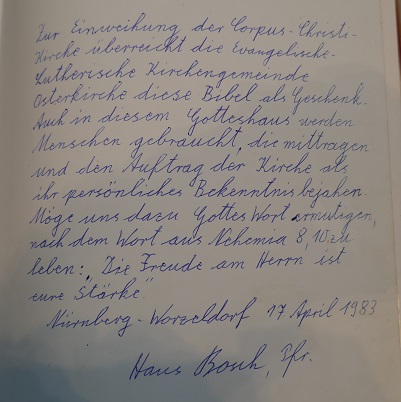 Zur Einweihung der Corpus-Christi-
Kirche überreicht die Evangelische-
Lutherische Kirchengemeinde
Osterkirche diese Bibel als Geschenk.
Auch in diesem Gotteshaus werden
Menschen gebraucht, die mittragen
und den Auftrag der Kirche als
ihr persönliches Bekenntnis bejahen.
Möge uns dazu Gottes Wort ermutigen,
nach dem Wort aus Nehemia 8,10 zu
leben: „Die Freude am Herrn ist
eure Stärke"
Nürnberg-Worzeldorf 17 April 1983
Hans Bosch, Pfr.